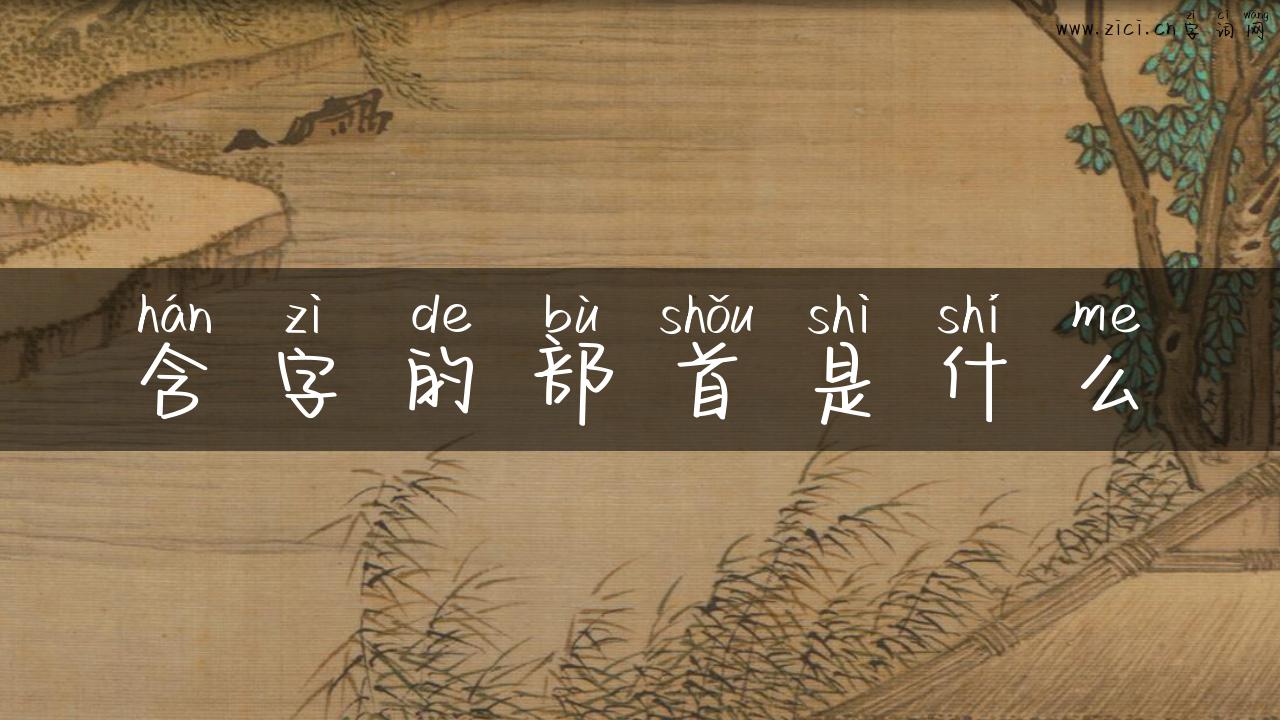 zì cí wǎng
www.zici.cn字词网
hán zì de bù shǒu shì shí me
含字的部首是什么